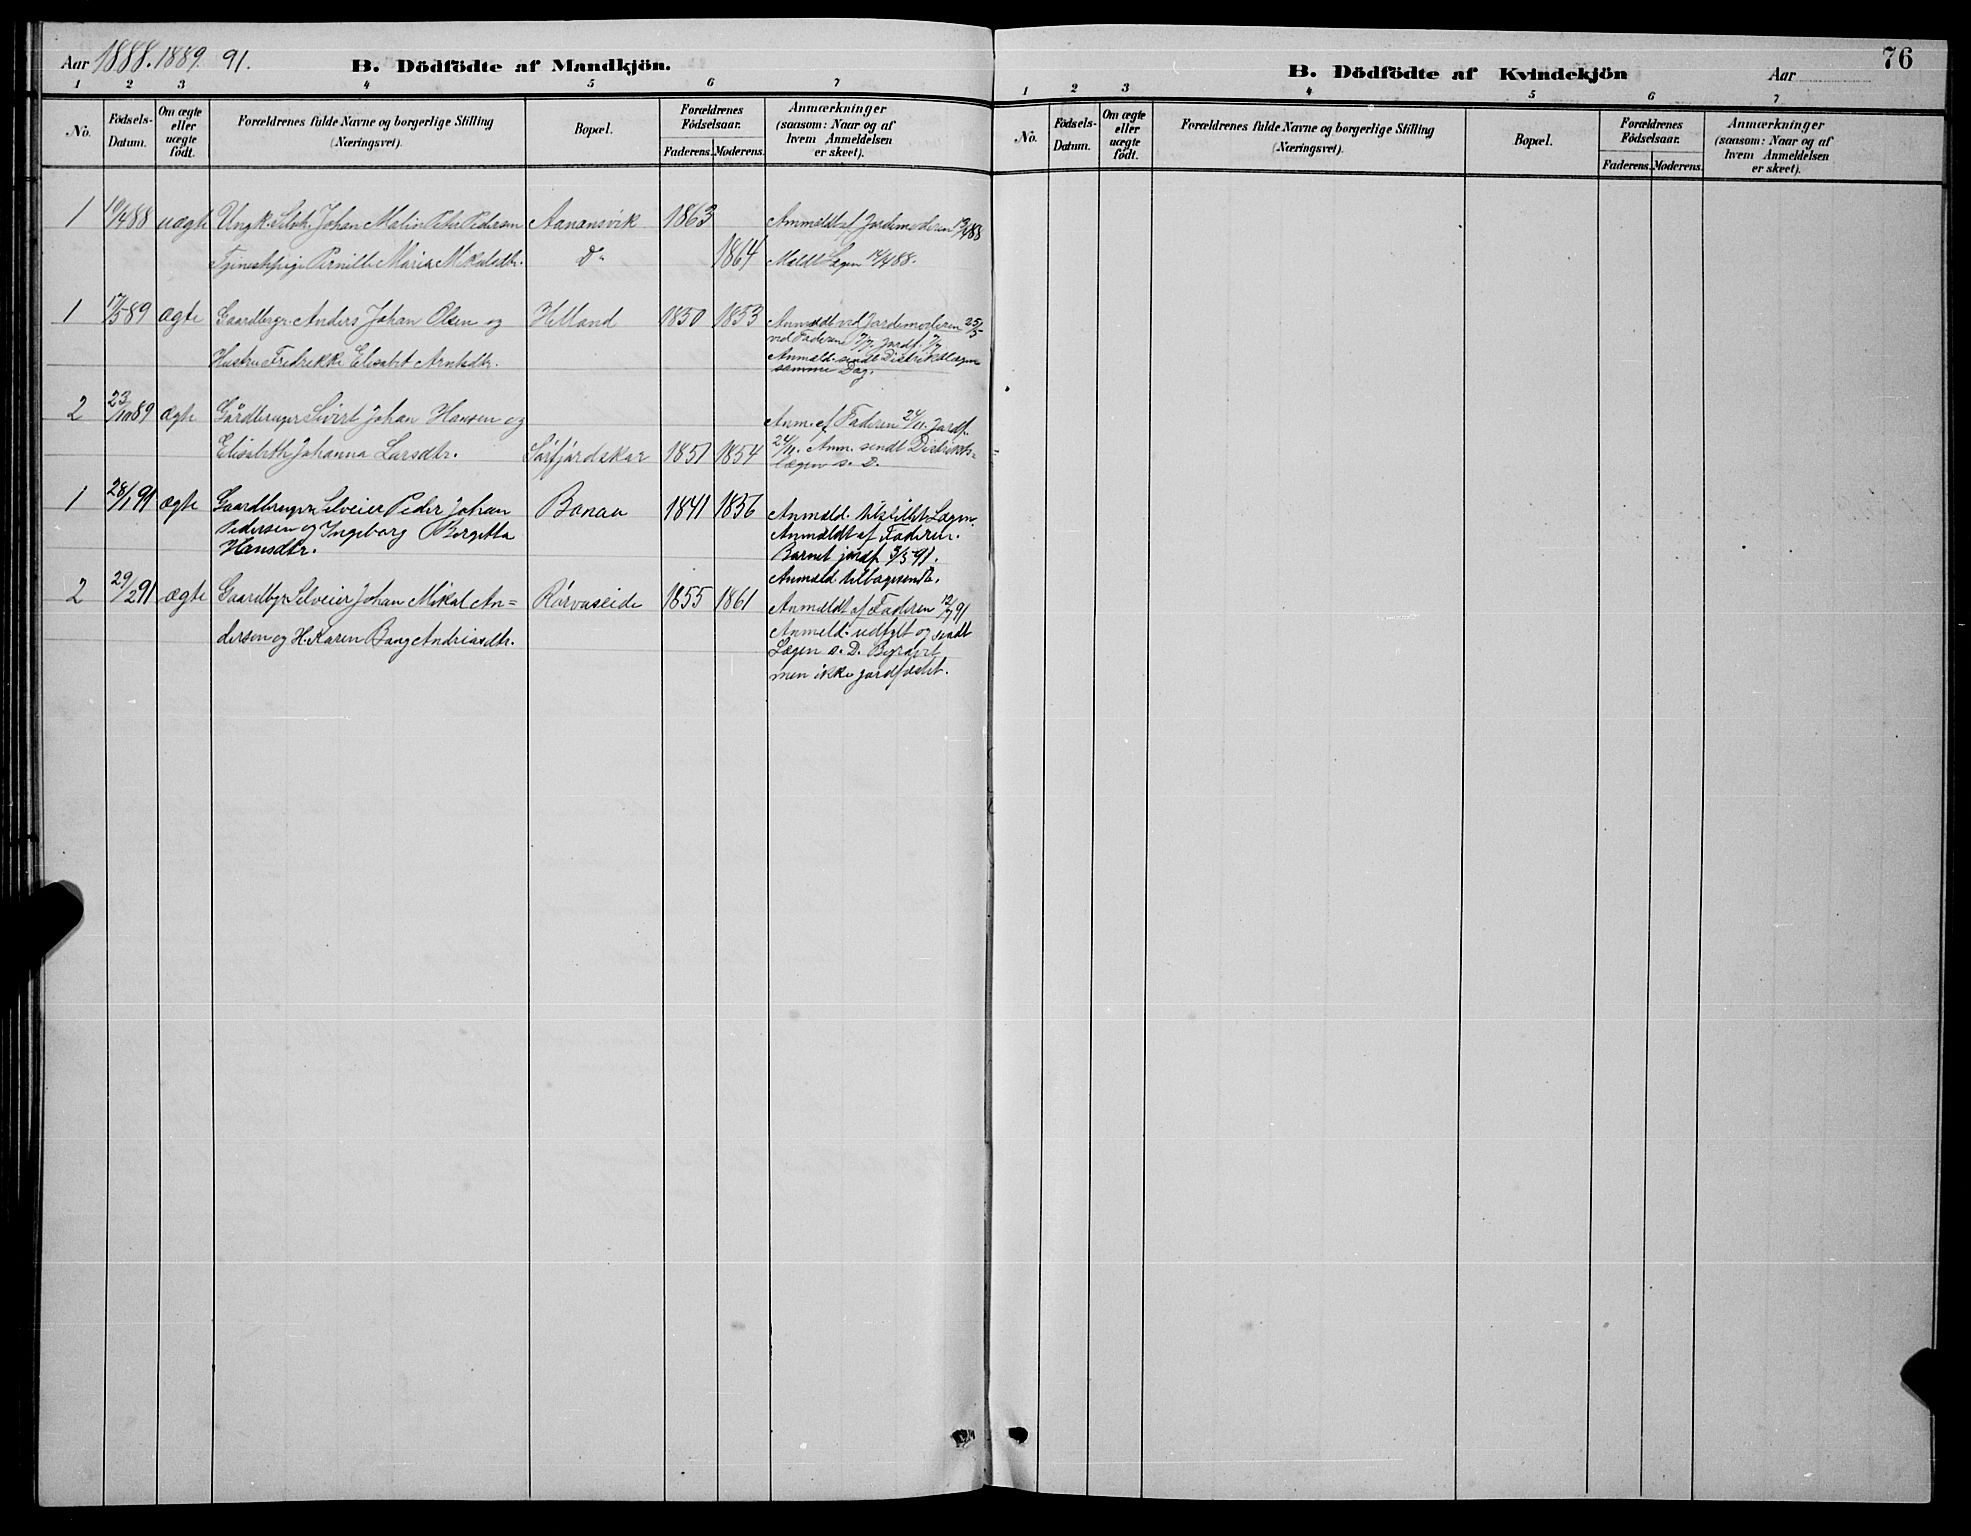 Aar 1888. 1889. 91.
B. Dödfödte af Mandkjön.
1 2 3 4 5 6 7
No.
Födsels-
Datum.
Om ægte
eller
uægte
födt.
Forældrenes fulde Navne og borgerlige Stilling
(Næringsvei).
Bopæl.
Forældrenes
Födselsaar.
Faderens. Moderens.
Anmærkninger
(saasom: Naar og af
hvem Anmeldelsen
er skeet).
1 10/4 88 uægte Ungk. Selv. Johan Malin Peder Pedersen Aanansvik 1863 Anmeldt af Jordemoderen 13/4 88
Tjenestepige Pernille Maria Mikalsdtr. Do 1864 Meldt Lægen 14/4 88.
1 17/5 89 ægte Gaardbrgr. Anders Johan Olsen og Helland 1850 1853 Anmeldt ved Jordemoderen 25/5
ved Faderen 7/7. Jordf. 7/7
Hustru Fredrikke Elisabet Arntsdtr. Anmeld. sendt Distriktslægen
samme Dag.
2 23/10 89 ægte Gårdbruger Sivert Johan Hansen og Anm. af Faderen 24/11. Jordf.
Elisabeth Johanna Larsdtr. Sörfjordskar 1851 1854 24/11. Anm. sendt Distrikts-
lægen s. D.
1 28/1 91 ægte Gaardbruger Selveier Peder Johan Bonaa 1841 1856 Anmeld. tilstillet Lægen.
Pedersen og Ingeborg Bergitta Anmeldt af Faderen.
Hansdtr. Barnet jordf. 3/5 91.
Anmeld tilbagesendt.
2 29/2 91 ægte Gaardbgr. Selveier Johan Mikal An= Rörvaseide 1855 1861 Anmeldt af Faderen 12/7 91
dersen og H. Karen Bang Andriasdtr. Anmeld. udfylt og sendt
Lægen s. D. Begravet
men ikke jordfæstet.
76
B. Dödfödte af Kvindekjön
Aar
1 2 3 4 5 6 7
No.
Födsels-
Datum.
Om ægte
eller
uægte
födt.
Forældrenes fulde Navne og borgerlige Stilling
(Næringsvei).
Bopæl.
Forældrenes
Födselsaar.
Faderens. Moderens.
Anmærkninger
(saasom: Naar og af
hvem Anmeldelsen
er skeet).